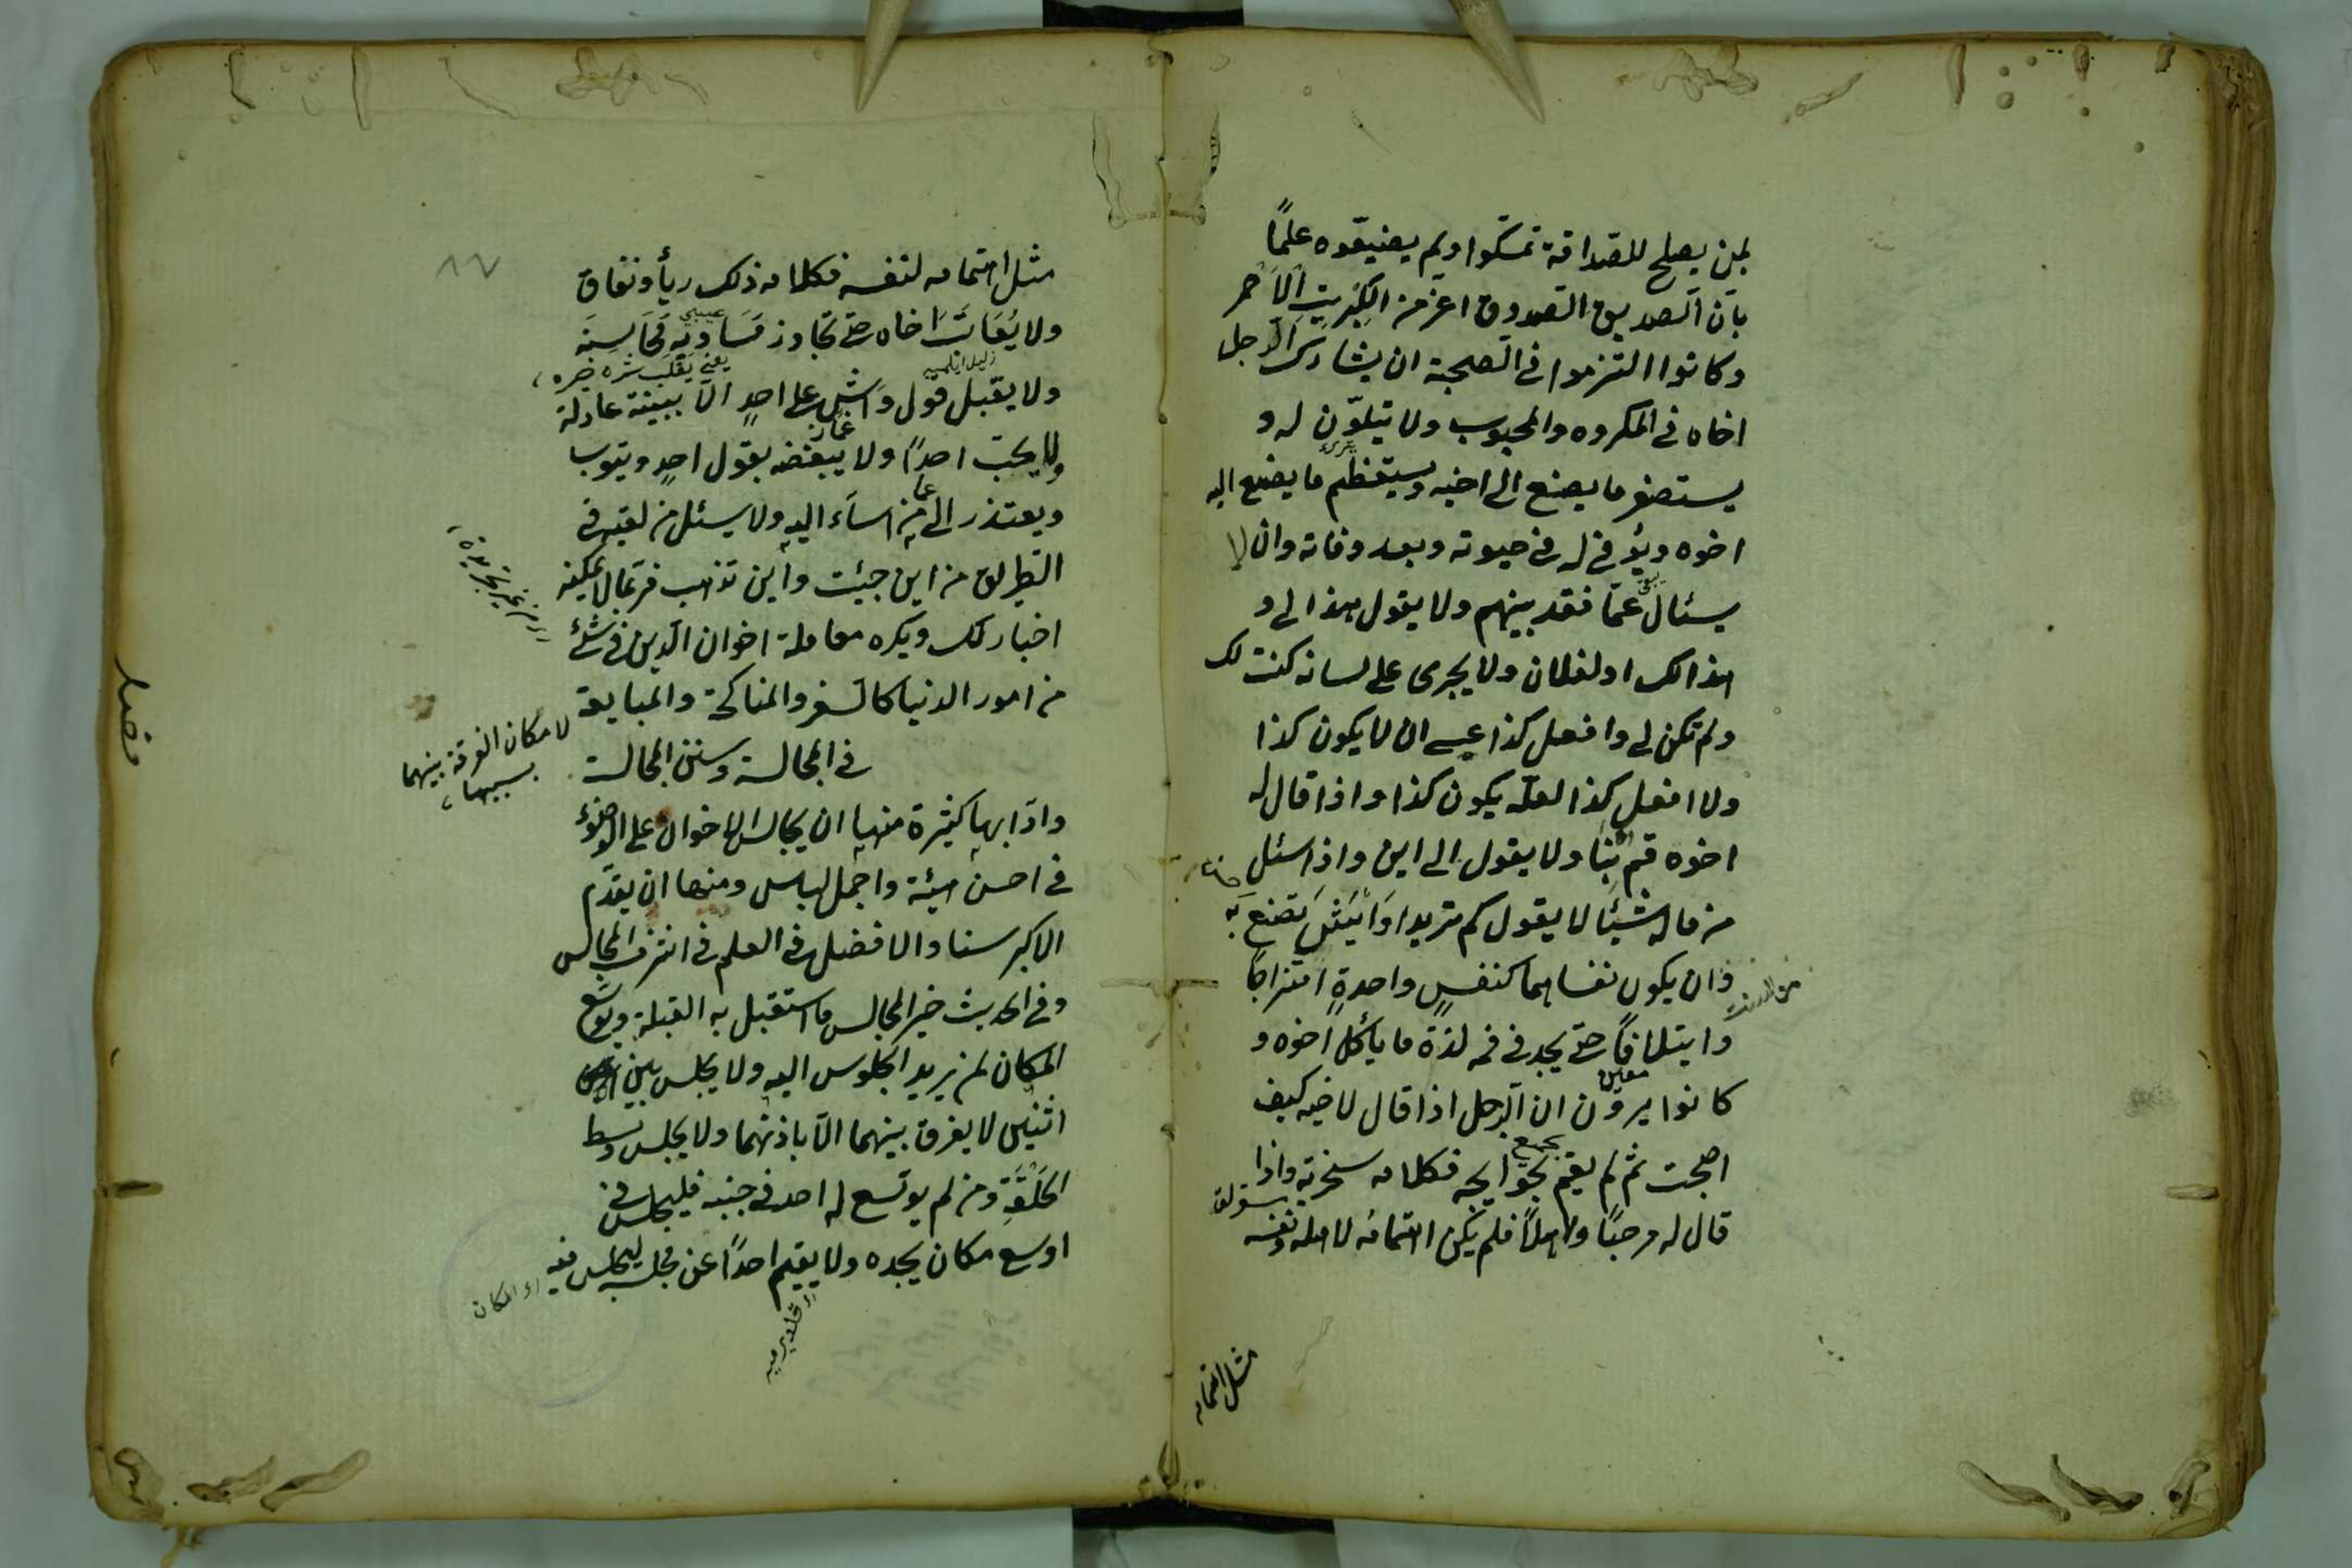 لمن يصلح للصداقة تمسكوا ولم يضيقوه علمًا
بأن الصديق الصدوق اعز من الكبريت الاحمر
وكانوا التزموا في الصحبة ان يشارك الرجل
اخاه في المكروه والمحبوب ولا يتلوّن له و
يستصغر ما يصنع الى اخيه ويستعظم ما يصنع اليه
اخوه ويوفى له في حيوته وبعد وفاته وان لا
يسئال عمّا فقد بينهم ولا يقول هذا لى و
هذا لك او لفلان ولا يجرى على لسانه كنت لك
ولم تكن لى وافعل كذا عسى ان لا يكون كذا
ولا افعل كذا لعله يكون كذا واذا قال له
اخوه قم بنا ولا يقول الى اين واذا سئل
من ماله شيئا لا يقول كم تريد او ايش تصنع به
وان يكون نفساهما كنفسٍ واحدةٍ امتزاجًا
وايتلافًا حتى يجد في فمه لذة ما يأكل اخوه و
كانوا يرون ان الرجل اذا قال لاخيه كيف
اصبحت ثم لم يقم بحوايجه فكلامه سخرية واذا
قال له مرحبًا واهلًا فلم يكن اهتمامه لاهله ونفسه
مثل اهتمامه
٨٧
مثل اهتمامه لنفسه فكلامه ذلك ريأ ونفاق
ولا يُعَاتِبَ اخاه حتى تجاوز مساويه محاسنه
يعنى يقلب شره خيره
ولا يقبل قول واشٍ على احدٍ الّا ببينة عادلة
ولا يحبّ احدًا ولا يبغضه بقول احدٍ ويتوب
ويعتذر الى من اساء اليه ولا يسئل من لقيه في
الطريق من اين جيئت واين تذهب فربما لا يمكنه
اخبارك ويكره معاملة اخوان الدين في شئ
من امور الدنيا كالسفر والمناكحة والمبايعة
لامكان الفرقة بينهما
بسببها
فصل
في المجالسة وسنن المجالسة
وادابها كثيرة منها ان يجالس الاخوان على الوضوء
في احسن هيئة واجمل لباس ومنها ان يقدّم
الاكبر سنا والافضل في العلم في اشرف المجالس
وفي الحديث خير المجالس ما استقبل به القبلة ويوسّع
المكان لمن يريد الجلوس اليه ولا يجلس بين
اثنين لا يفرق بينهما الّا باذنهما ولا يجلس وسط
الحَلْقَةِ ومن لم يوسع له احد في جنبه فليجلس في
اوسع مكان يجده ولا يقيم احدًا عن مجلسه ليجلس فيه